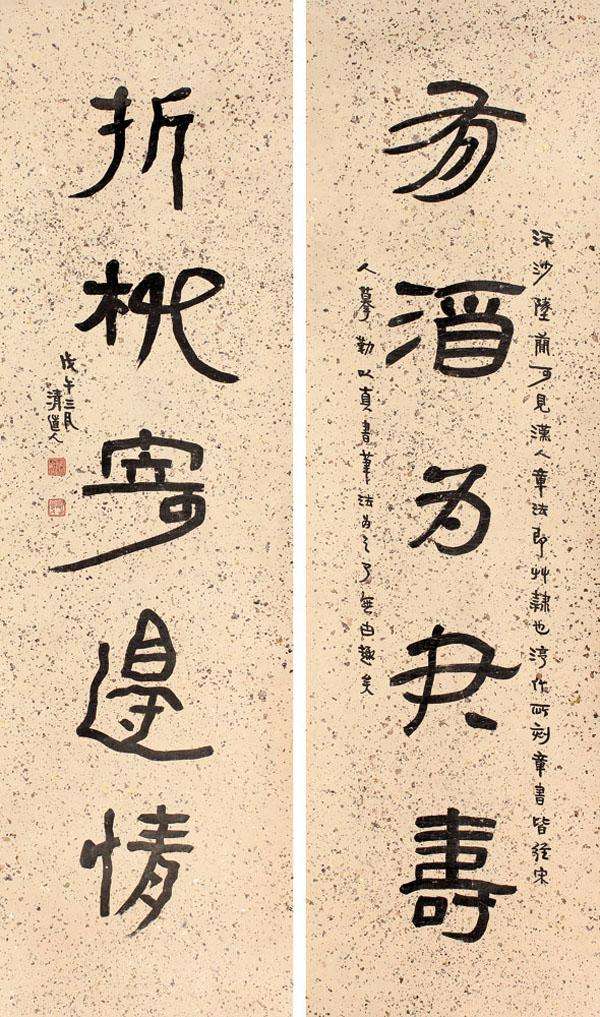 流沙墜簡可見漢人章法即艸隸也淳化所刻章書皆經宋
有酒为君壽
人摹勒以真書筆法为之了無古趣矣
折柳寄邊情
戊午三月
清道人